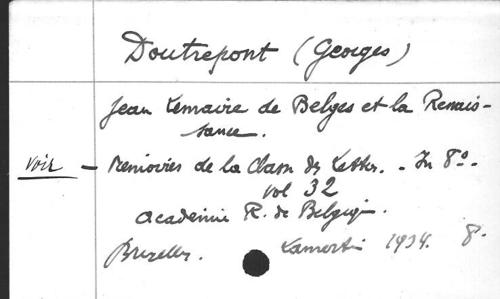 Doutrepont (Georges)
Jean Lemaire de Belges et la Renais-
sance.
voir - Memoires de la Classe des Lettres. - In 8º.
vol 32
Academie R. de Belgique.
Bruxelles. Lamertin 1934. 8.